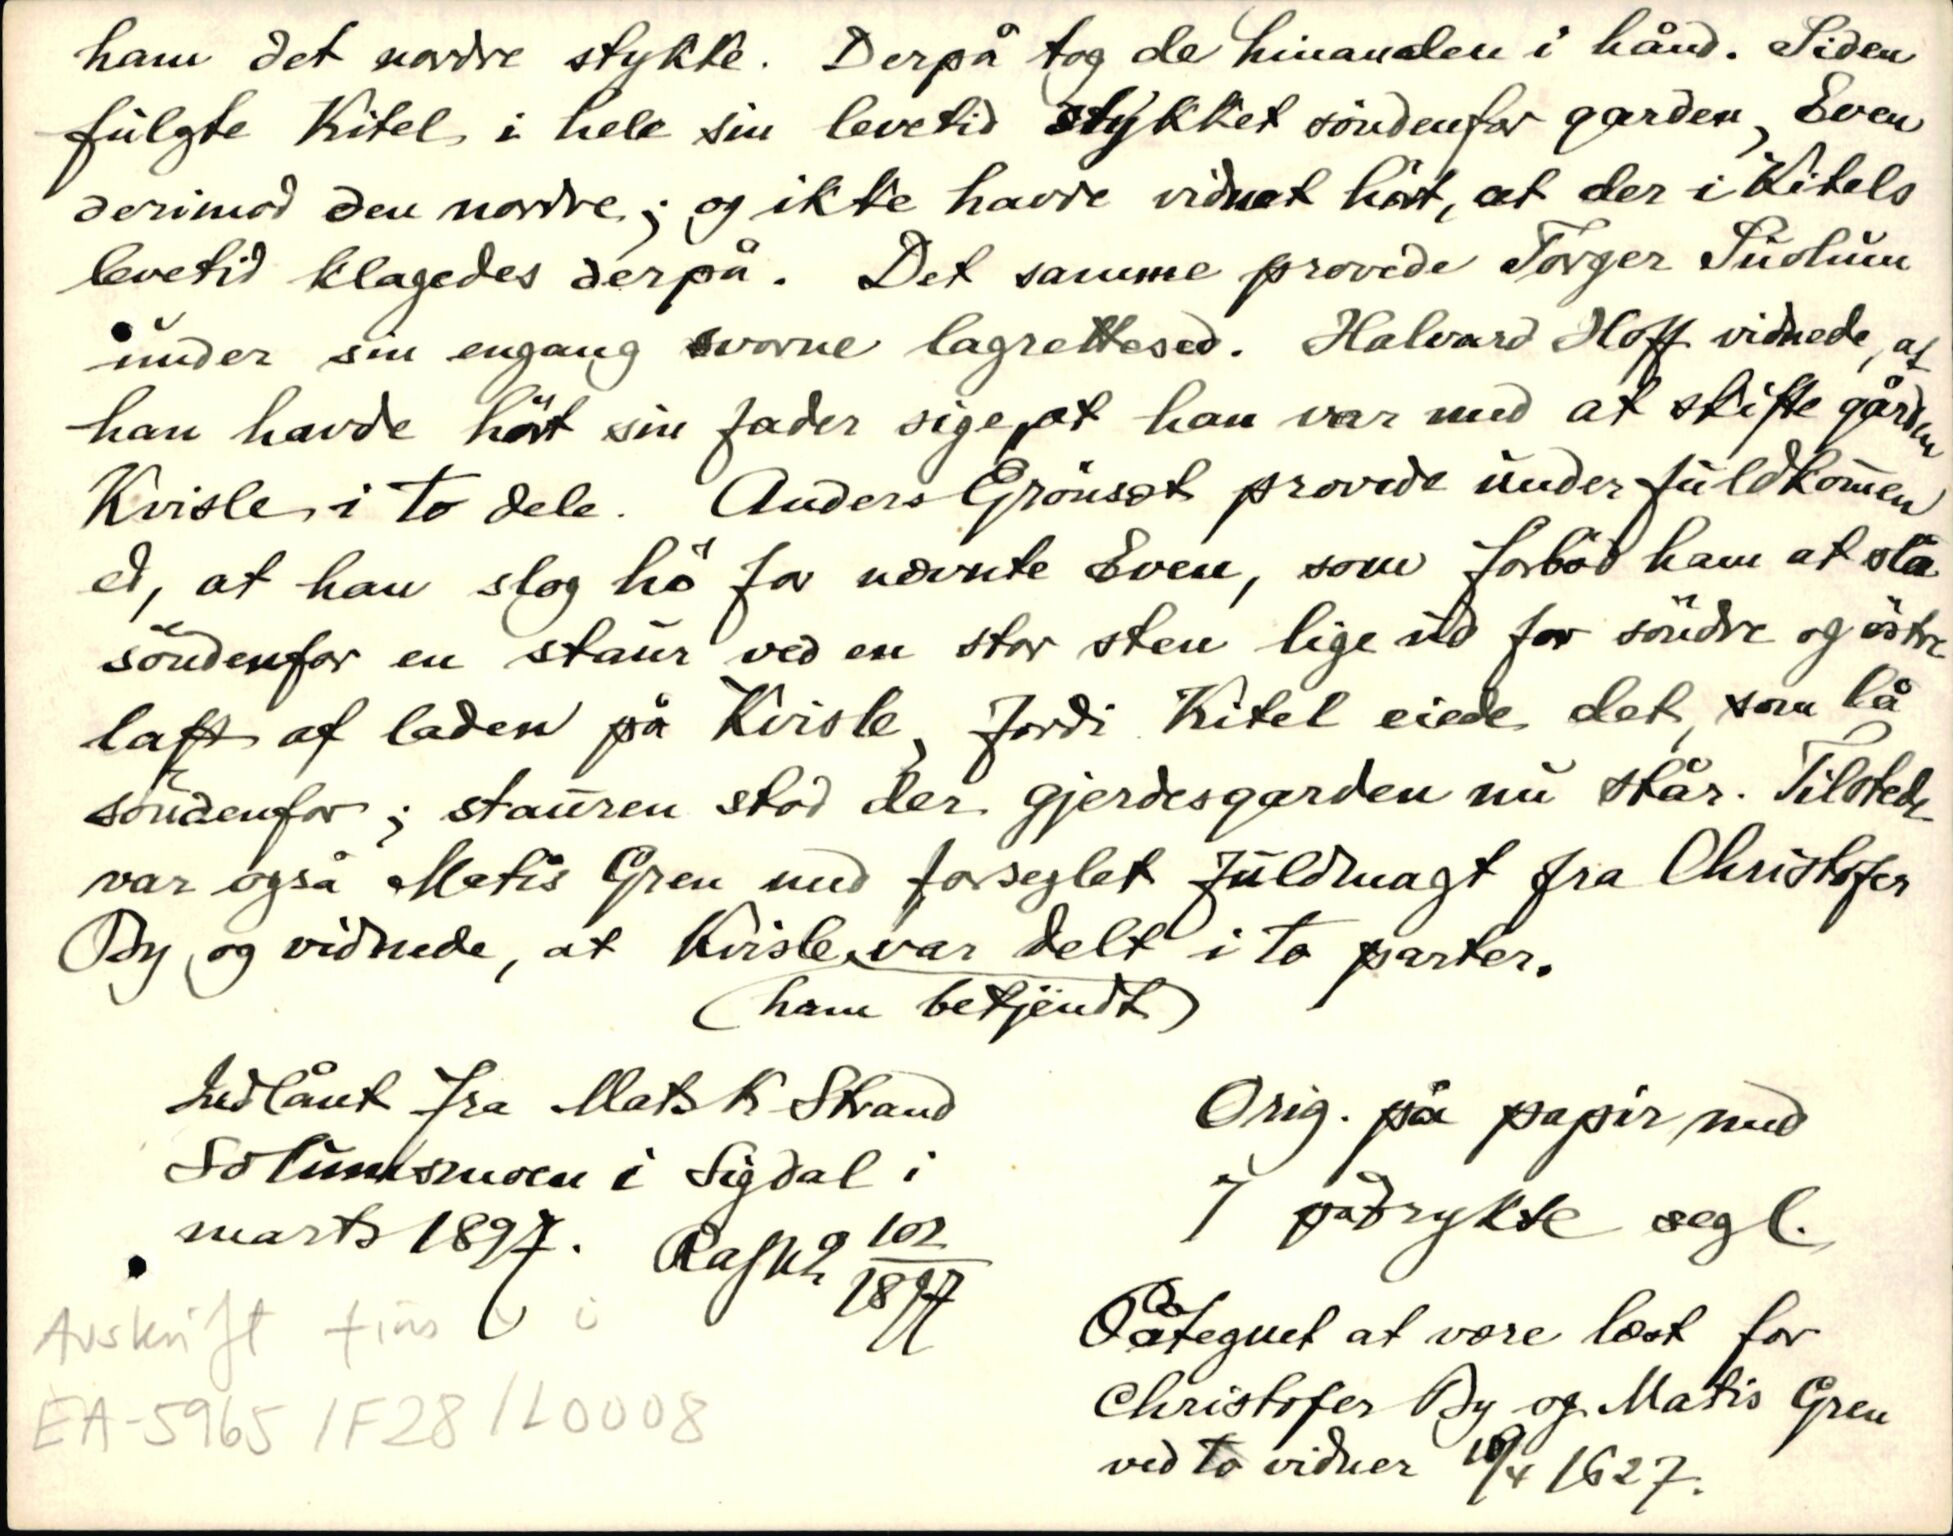 ham det nordre stykke. Derpå tog de hinanden i hånd. Siden
fulgte Kitel i hele sin levetid stykket söndenfor garden, Even
derimod den nordre; og ikke havde vidnet hört, at der i Kitels
levetid klagedes derpå. Det samme provede Torger
under sin engang svorne lagrettesed. Halvard Hoff vidnede, at
han havde hört sin fader sige, at han var med at skifte gården
Kvisle i to dele. Anders Grönset provede under fuldkommen
ed, at han slog hö for nævnte Even, som forböd ham at slå
söndenfor en staur ved en stor sten lige ud for söndre og östre
laft af laden på Kvisle, fordi Kitel eiede det, som lå
söndenfor; stauren stod der gjerdesgarden nu står. Tilstede
var også Matis Gren med forseglet fuldmagt fra Christofer
By, og vidnede, at Kvisle var delt i to parter.
(ham bekjendt)
Indlånt fra Mats K Strand
Solumsmoen i Sigdal i
marts 1897. 102/1897
Orig. på papir med
7 pådrykte segl.
Påtegnet at være læst for
Christofer By og Matis Gren
ved to vidner 1627.
Avskrift fins i
EA-5965/F28/L0008